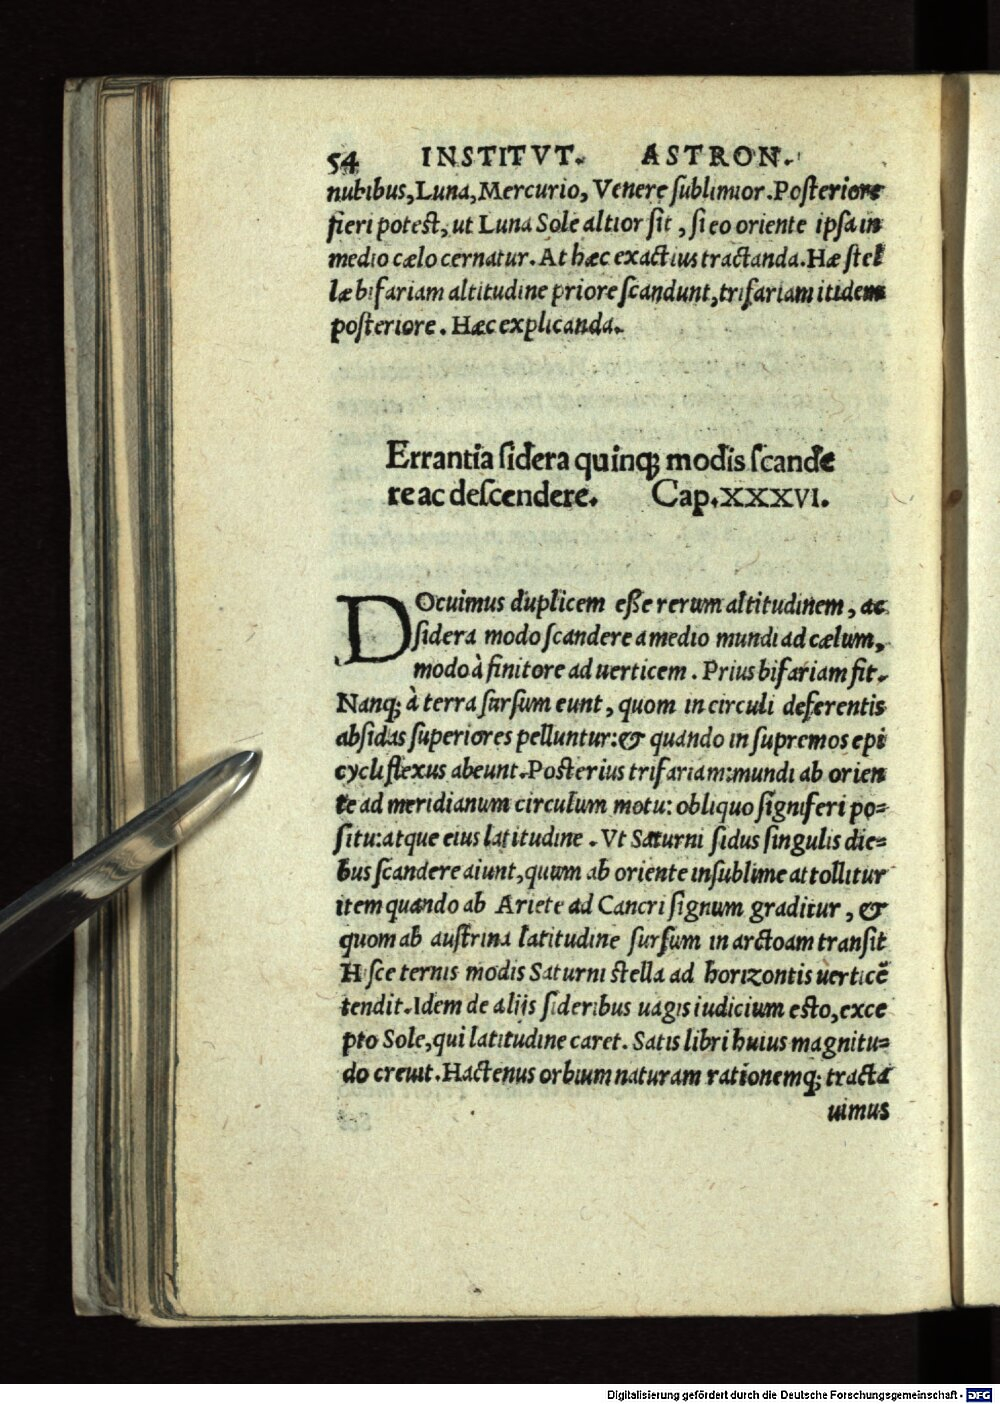 54 INSTITVT. ASTRON.
nubibus, Luna, Mercurio, Venere ſublimior. Poſteriore
fieri poteſt, ut Luna Sole altior ſit, ſi eo oriente ipſa in
medio cælo cernatur. At hæc exactius tractanda. Hæ ſtel
læ bifariam altitudine priore ſcandunt, trifariam itidem
poſteriore. Hæc explicanda.
Errantia ſidera quinq; modis ſcande
re ac deſcendere. Cap. XXXVI.
DOcuimus duplicem eſſe rerum altitudinem, ac
ſidera modo ſcandere a medio mundi ad cælum,
modo à finitore ad uerticem. Prius bifariam fit.
Nanq; à terra ſurſum eunt, quom in circuli deferentis
abſidas ſuperiores pelluntur: & quando in ſupremos epi
cycli flexus abeunt. Poſterius trifariam: mundi ab orien
te ad meridianum circulum motu: obliquo ſigniferi po=
ſitu: atque eius latitudine. Vt Saturni ſidus ſingulis die=
bus ſcandere aiunt, quum ab oriente in ſublime attollitur
item quando ab Ariete ad Cancri ſignum graditur, &
quom ab auſtrina latitudine ſurſum in arctoam tranſit
Hiſce ternis modis Saturni ſtella ad horizontis uerticē
tendit. Idem de aliis ſideribus uagis iudicium eſto, exce
pto Sole, qui latitudine caret. Satis libri huius magnitu=
do creuit. Hactenus orbium naturam rationemq; tracta
uimus
Digitalisierung gefördert durch die Deutsche Forschungsgemeinschaft - DFG